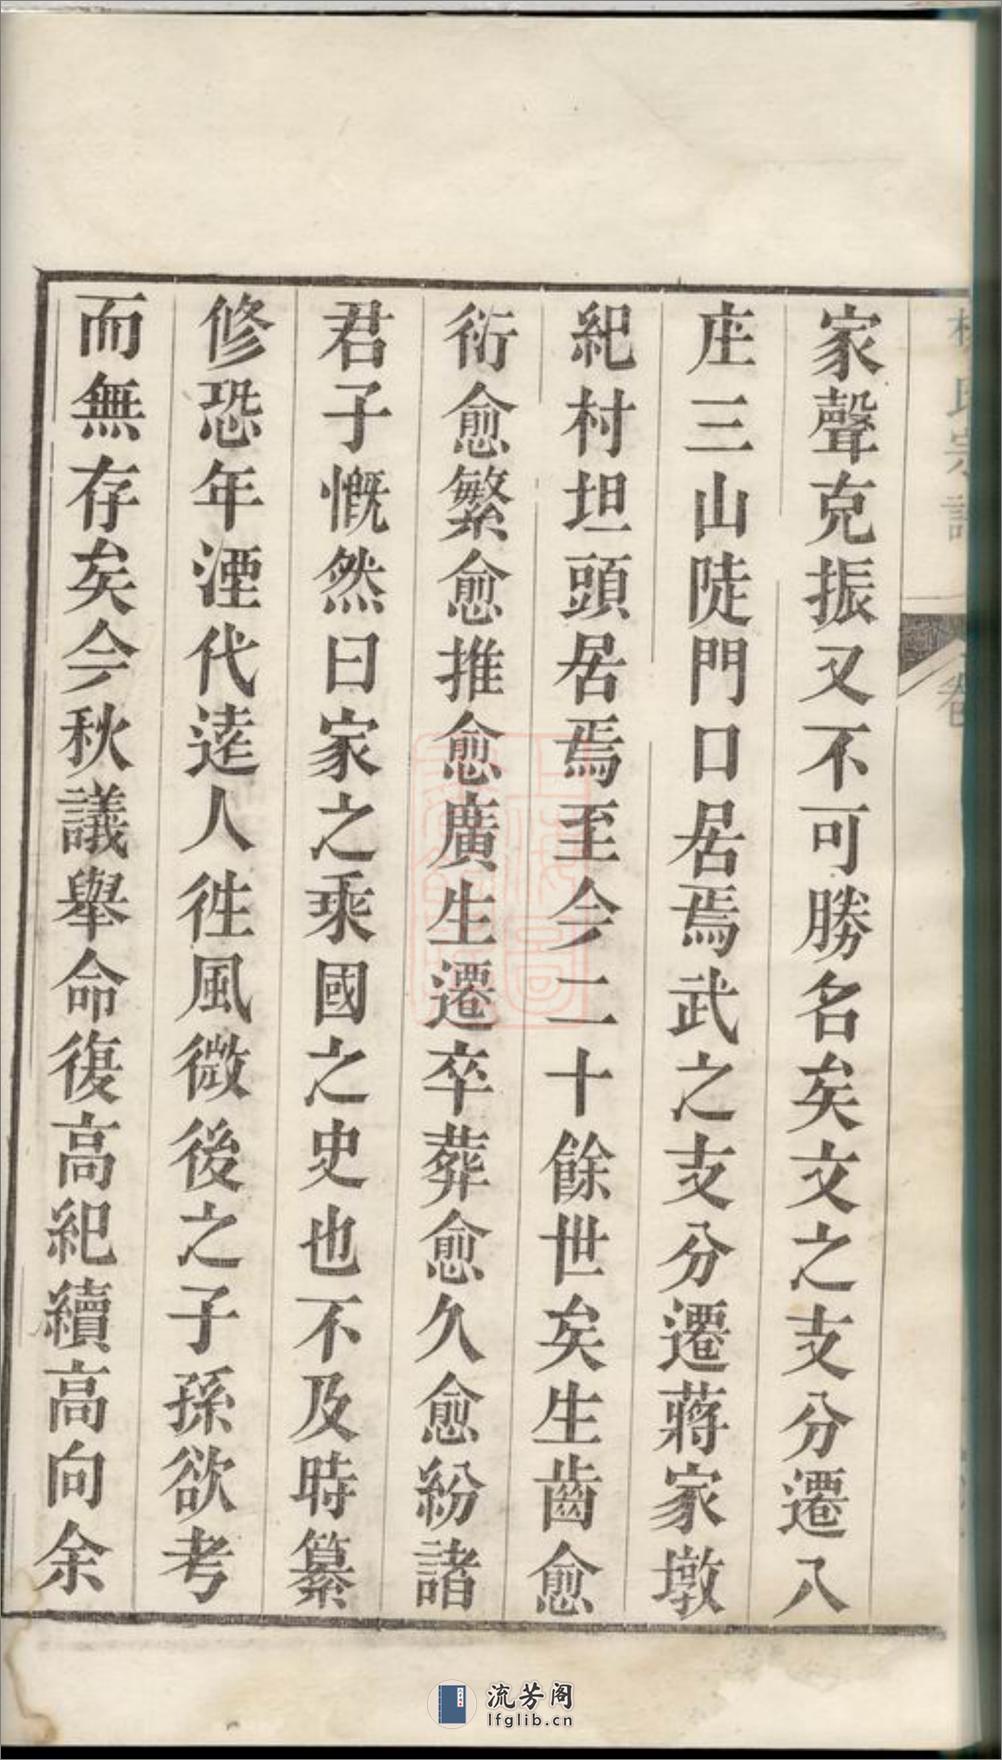 家聲克振又不可勝名矣文之支分遷八
庄三山陡門口居焉武之支分遷蔣家墩
紀村坦頭居焉至今二十餘世矣生齒愈
衍愈繁愈推愈廣生遷卒葬愈久愈紛諸
君子慨然曰家之乘國之史也不及時纂
修恐年湮代遠人徃風微後之子孫欲考
而無存矣今秋議舉命復高紀續高向余
流芳阁
lfglib.cn